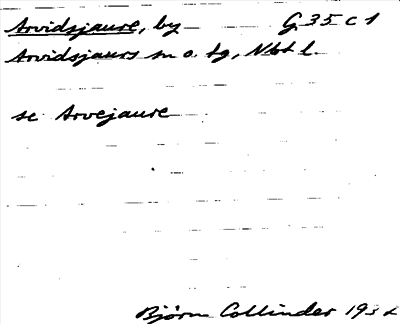 Arvidsjaure, by G 35 c 1
Arvidsjaurs sn o. tg, Nbt l.
se Arvejaure
Björn Collinder 193